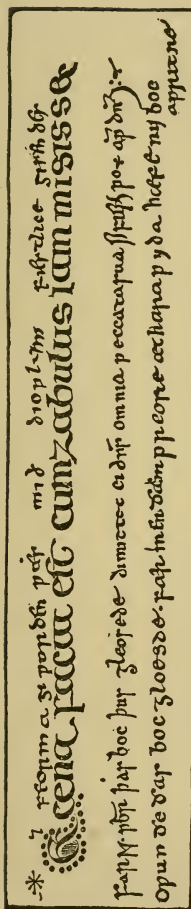 ⁊ feorma giƿorden ƿæs mið
Et cena facta est cum zabulus iam misisset
pbr þas boc þus gleosede dimittet ei dns omnia peccata sua si fieri pot ap dm
Oƿun ðe ðas boc gloesde. færmen ðæm preoste æt haraƿuda hæfe nu boc
aƿritne